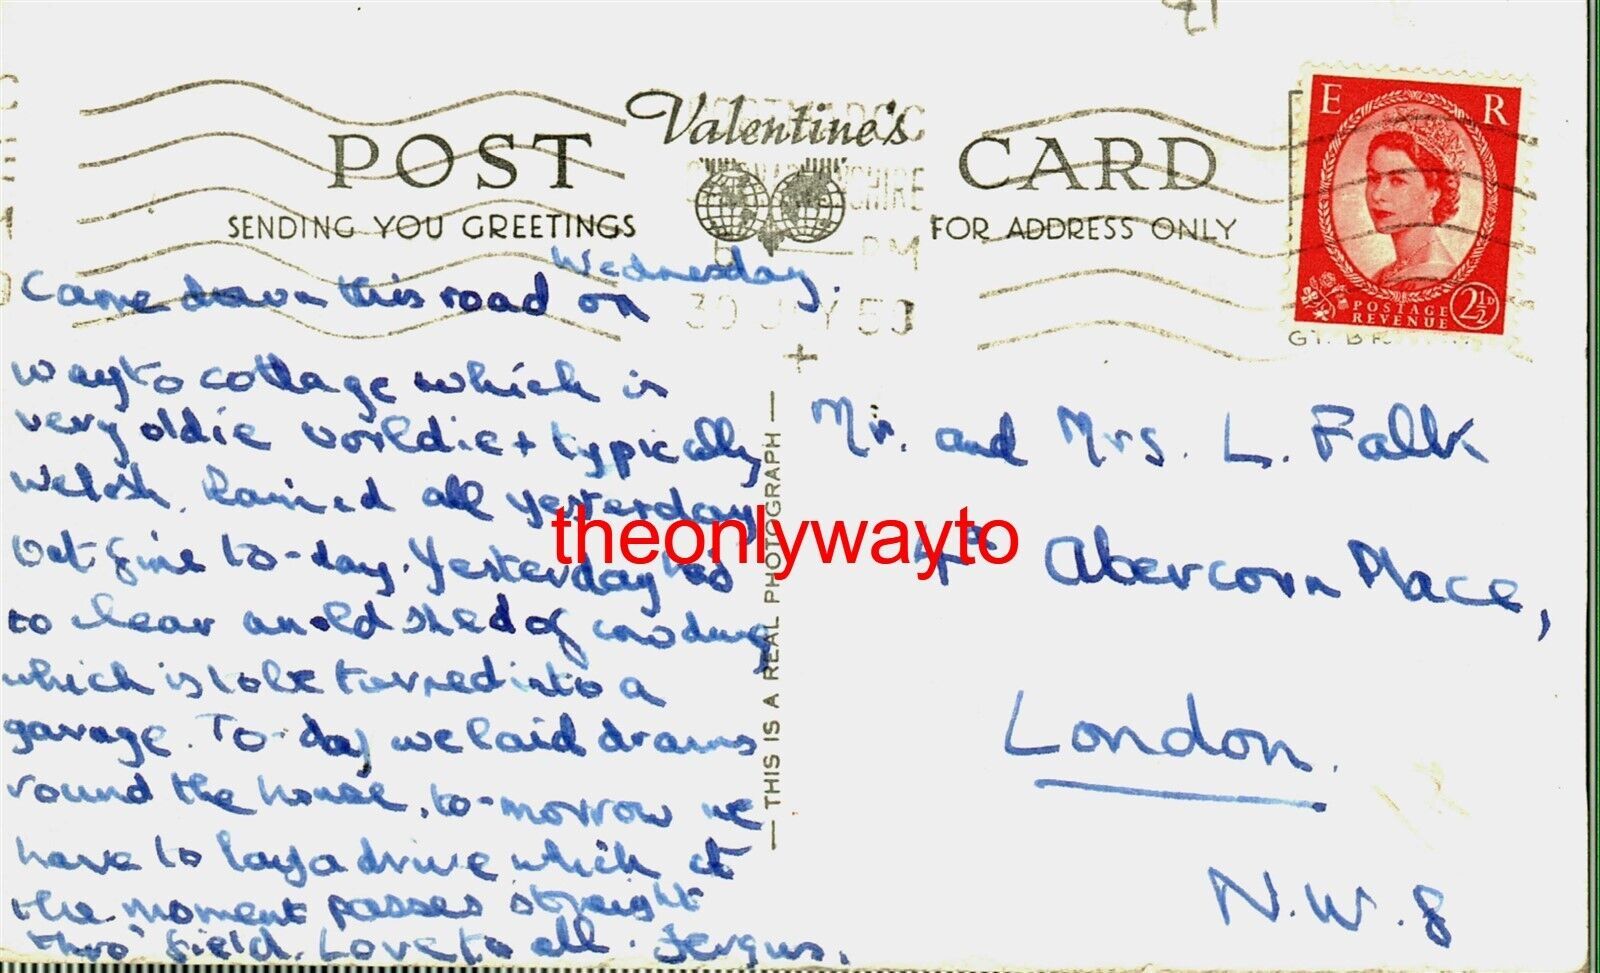 Valentine's
POST CARD
SENDING YOU GREETINGS
FOR ADDRESS ONLY
PM
30 JLY 59
E R
POSTAGE
REVENUE
2½D
GT. BR
Wednesday.
Came down this road on
way to cottage which is
very oldie worldie + typically
Welsh. Rained all yesterday
but fine to-day. Yesterday had
to clear an old shed of
which is to be turned into a
garage. To-day we laid drains
round the house, to-morrow we
have to lay a drive which at
the moment passes straight
thro' field. Love to all. Fergus.
— THIS IS A REAL PHOTOGRAPH —
Mr. and Mrs. L. Falk
4a Abercorn Place,
London.
N.W.8
theonlywayto